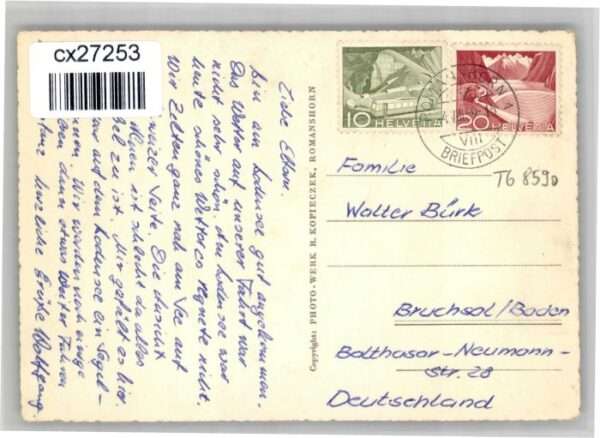 cx27253
Liebe Eltern.
bin am Bodensee gut angekommen.
Das Wetter auf unserer Fahrt war
nicht sehr schön. Am Bodensee war
heute schönes Wetter es regnete nicht.
Wir Zelten ganz nah am See auf
Seite. Die Aussicht
ist schlecht da alles
zu ist. Mir gefällt es hier.
auf dem Bodensee ein Segel-
Wir werden noch einige
dann etwas weiter Fahren
herzliche Grüße Wolfgang
Copyright: PHOTO-WERK R. KOPIECZEK, ROMANSHORN
10 HELVETIA
20 HELVETIA
VIII
BRIEFPOST
T6 859D
Familie
Walter Bürk
Bruchsal/Baden
Balthasar-Neumann-
str. 28
Deutschland